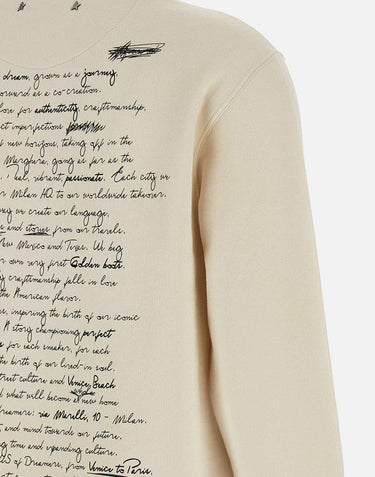 dream, grown as a journey.
forward as a co-creation.
love for authenticity, craftsmanship,
ct imperfections
new horizons, taking off in the
Marghera, going as far as the
eal, vibrant, passionate. Each city we
Milan HQ to our worldwide takeover.
way we create our language,
and stories from our travels.
New Mexico and Texas. We beg
our own very first Golden boots.
craftsmanship falls in love
the American flavor.
inspiring the birth of our iconic
A story championing perfect
for each sneaker, for each
the birth of our lived-in soul.
street culture and Venice Beach
d what will become a new home
dreamers: via Morelli, 10 - Milan.
and mind towards our future.
ng time and expanding culture.
of Dreamers, from Venice to Paris.